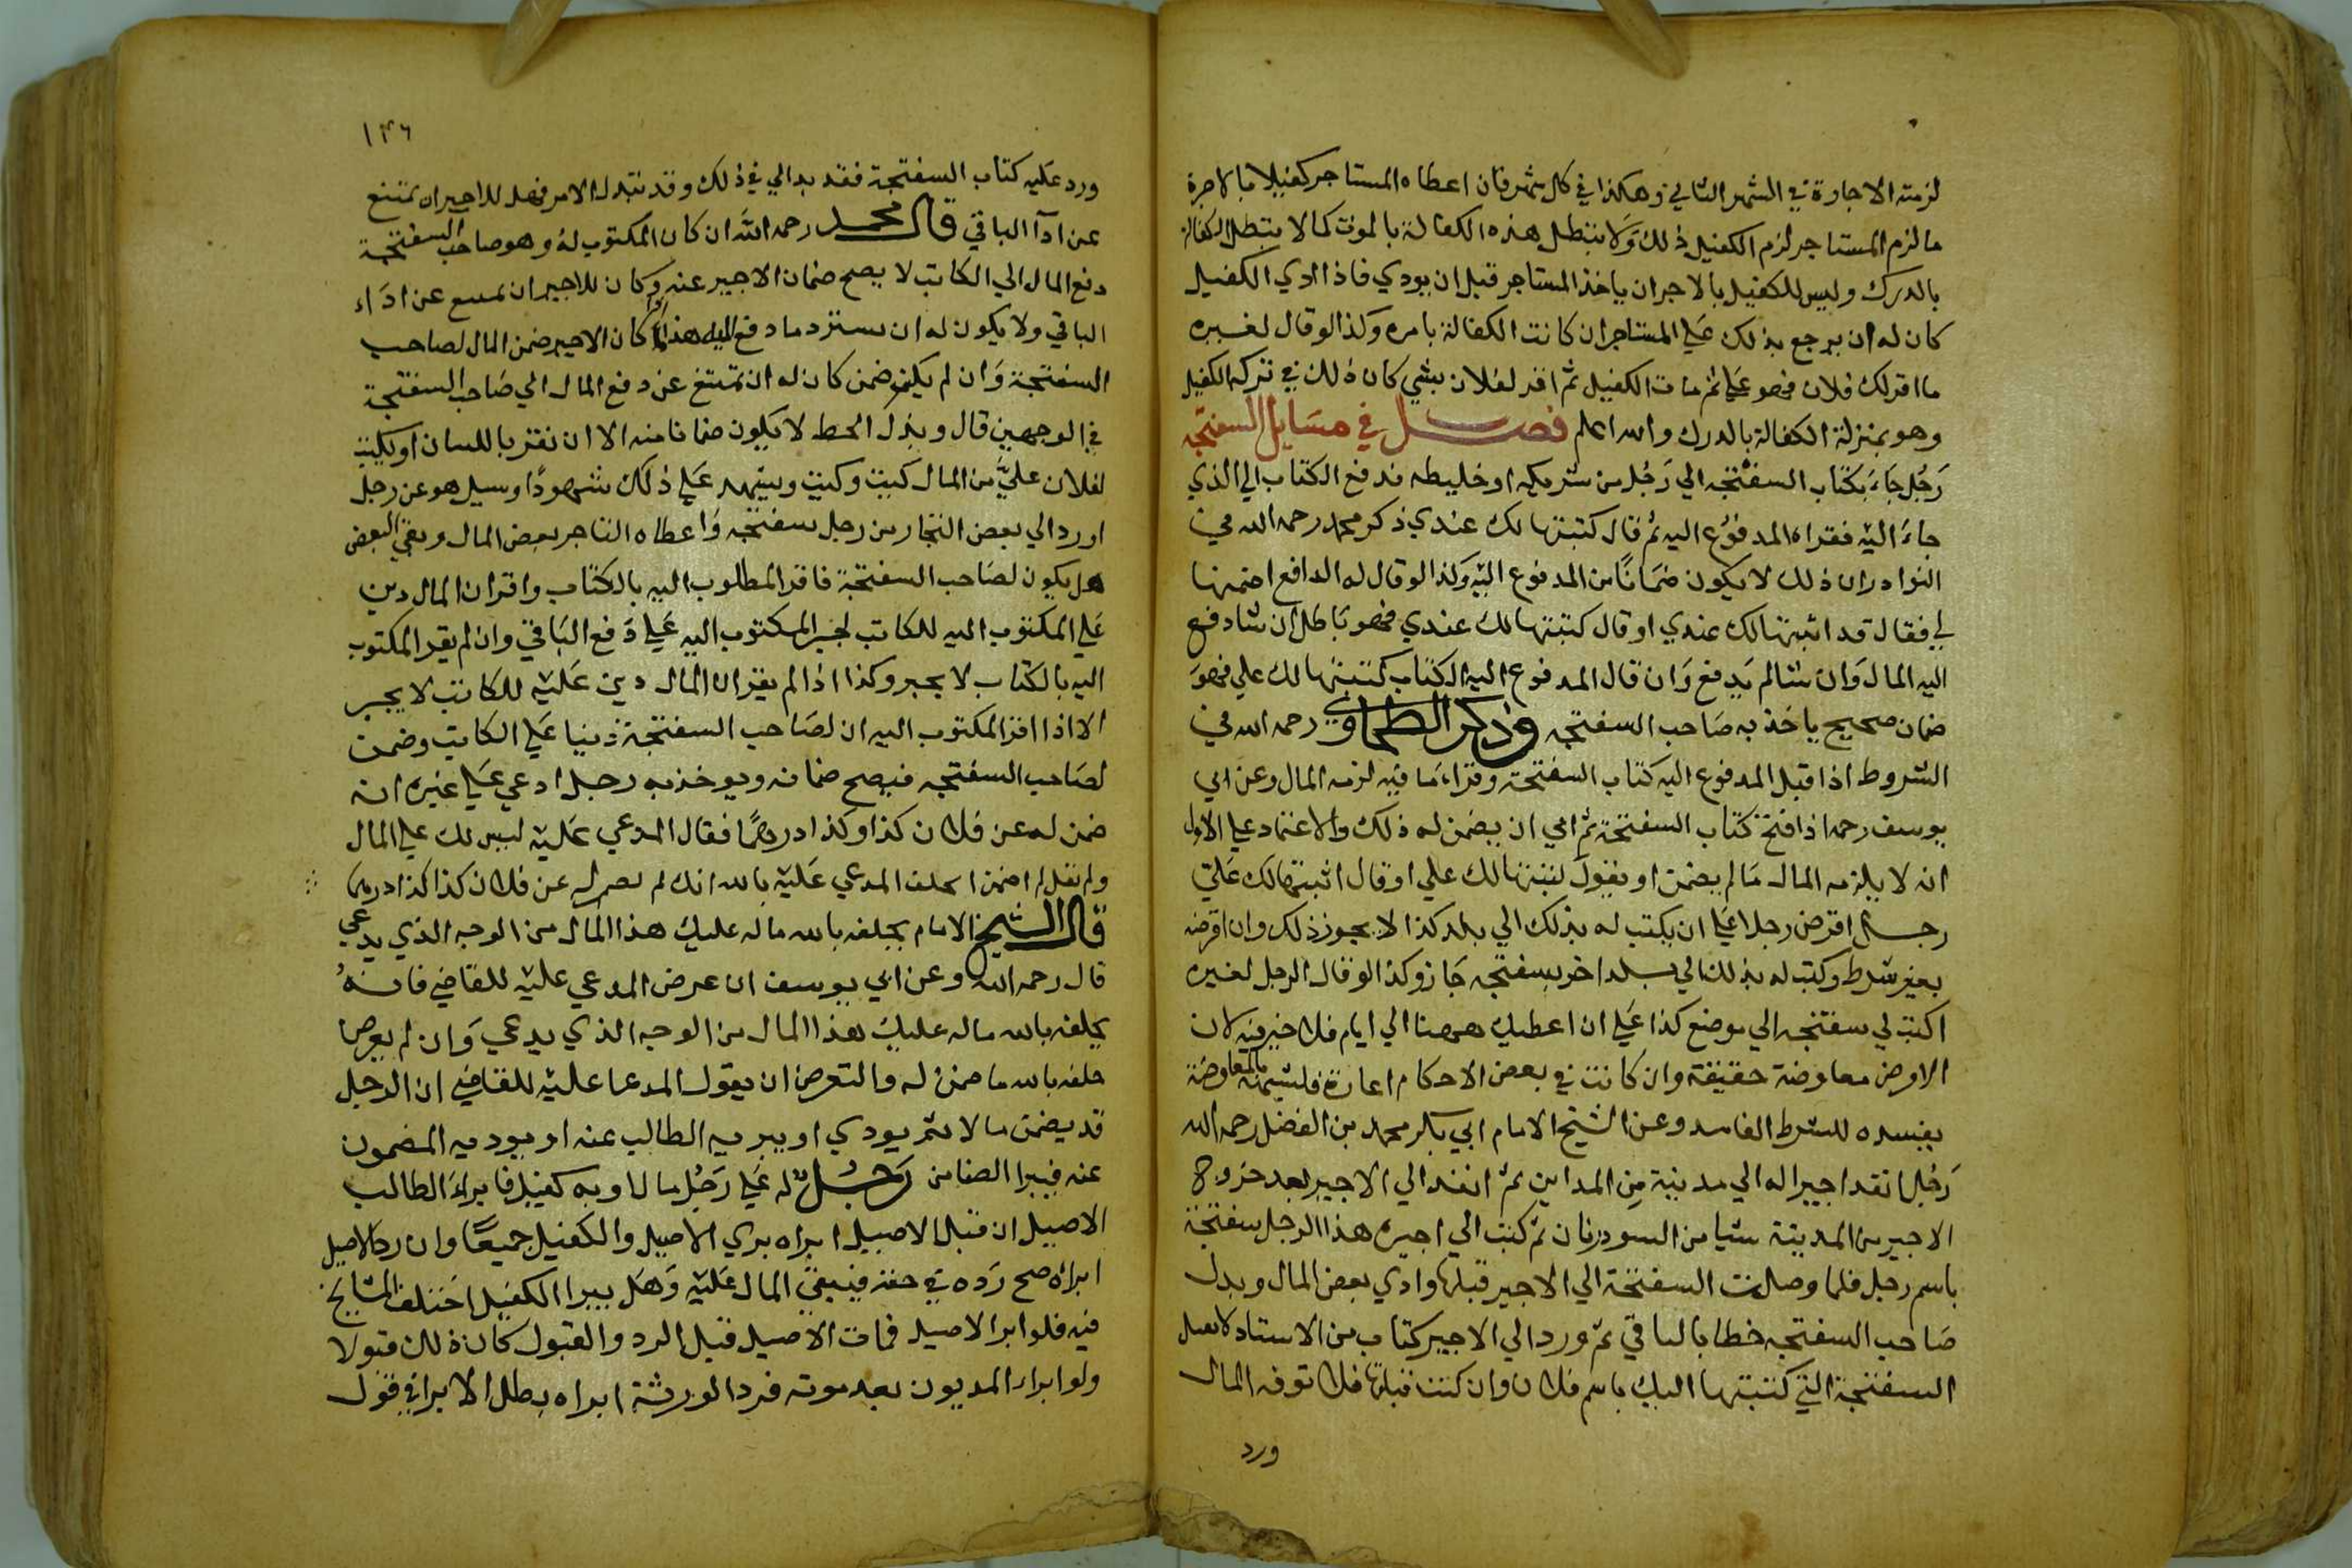 لزمته الاجارة في الشهر الثاني وهكذا في كل شهر فان اعطاه المستاجر كفيلا بالاجرة
ما لزم المستاجر لزم الكفيل ذلك ولا تبطل هذه الكفالة بالموت كما لا تبطل الكفالة
بالدرك وليس للكفيل بالاجر ان ياخذ المستاجر قبل ان يودي فاذا ادي الكفيل
كان له ان يرجع بذلك علي المستاجر ان كانت الكفالة بامره وكذا لو قال لغيره
ما اقر لك فلان فهو علي ثم مات الكفيل ثم اقر لفلان بشي كان ذلك في تركة الكفيل
وهو بمنزلة الكفالة بالدرك والله اعلم فصل في مسايل السفتجه
رجل جاء بكتاب السفتجه الي رجل من شريكه او خليطه فدفع الكتاب الي الذي
جاء اليه فقراه المدفوع اليه ثم قال كتبتها لك عندي ذكر محمد رحمه الله في
النوادر ان ذلك لا يكون ضمانا من المدفوع اليه وكذا لو قال له الدافع اضمنها
لي فقال قد اثبتها لك عندي او قال كتبتها لك عندي فهو باطل ان شا دفع
اليه المال وان شا لم يدفع وان قال المدفوع اليه الكتاب كتبتها لك علي فهو
ضمان صحيح ياخذ به صاحب السفتجه وذكر الطحاوي رحمه الله في
الشروط اذا قبل المدفوع اليه كتاب السفتجة وقراء ما فيه لزمه المال وعن ابي
يوسف رحمه اذا فتح كتاب السفتجة ثم ابي ان يضمن له ذلك والاعتماد علي الاول
انه لا يلزمه المال ما لم يضمن او يقول كتبتها لك علي او قال اثبتها لك علي
رجل اقرض رجلا علي ان يكتب له بذلك الي بلد كذا لا يجوز ذلك وان اقرضه
بغير شرط وكتب له بذلك الي بلد اخر سفتجه جاز وكذا لو قال الرجل لغيره
اكتب لي سفتجه الي موضع كذا علي ان اعطيك ههنا الي ايام فلا خير فيه لان
القرض معاوضة حقيقة وان كانت في بعض الاحكام اعارة بالمعاوضة
يفسده للشرط الفاسد وعن الشيخ الامام ابي بكر محمد بن الفضل رحمه الله
رجل انفد اجيرا له الي مدينة من المداين ثم انفد الي الاجير بعد خروج
الاجير من المدينة شيا من ثم كتب الي اجيره هذا الرجل سفتجة
باسم رجل فلما وصلت السفتجة الي الاجير قبلها وادي بعض المال وبدل
صاحب السفتجه خطا بالباقي ثم ورد الي الاجير كتاب من الاستاد لا تقبل
السفتجة التي كتبتها اليك باسم فلان وان كنت قبلتها فلا توفه المال
ورد
١٣٦
ورد عليه كتاب السفتجة فقد بدالي في ذلك وقد تبدل الامر فهل للاجير ان يمتنع
عن ادآ الباقي قال محمد رحمه الله ان كان المكتوب له وهو صاحب السفتجة
دفع المال الي الكاتب لا يصح ضمان الاجير عنه وكان للاجير ان يمتنع عن اداء
الباقي ولا يكون له ان يسترد ما دفع اليه هذا كان الاجير ضمن المال لصاحب
السفتجة وان لم يكن ضمن كان له ان يمتنع عن دفع المال الي صاحب السفتجة
في الوجهين قال وبذل الخط لا يكون ضمانا منه الا ان يقر باللسان او يكتب
لفلان علي من المال كيت وكيت ويشهد علي ذلك شهودا وسيل هو عن رجل
اورد الي بعض التجار من رجل سفتجه واعطاه التاجر بعض المال وبقي البعض
هل يكون لصاحب السفتجة فاقر المطلوب اليه بالكتاب واقر ان المال دين
علي المكتوب اليه للكاتب يجبر المكتوب اليه علي دفع الباقي وان لم يقر المكتوب
اليه بالكتاب لا يجبر وكذا اذا لم يقر ان المال دين عليه للكاتب لا يجبر
الا اذا اقر المكتوب اليه ان لصاحب السفتجة دينا علي الكاتب وضمن
لصاحب السفتجه فيصح ضمانه ويوخذ به رجل ادعي علي غيره انه
ضمن له عن فلان كذا وكذا درهما فقال المدعي عليه ليس لك علي المال
ولم نقل لم اضمن يحلف المدعي عليه بالله انك لم تضمن له عن فلان كذا كذا درهما
قال الشيخ الامام يحلفه بالله ماله عليك هذا المال من الوجه الذي يدعي
قال رحمه الله وعن ابي يوسف ان عرض المدعي عليه للقاضي فانه
يحلفه بالله ماله عليك هذا المال من الوجه الذي يدعي وان لم يعرض
حلفه بالله ما ضمن له والتعرض ان يقول المدعا عليه للقاضي ان الرجل
قد يضمن مالا ثم يودي او يبريه الطالب عنه او يوديه المضمون
عنه فيبرا الضامن رجل له علي رجل مال وبه كفيل فابراء الطالب
الاصيل ان قبل الاصيل ابراه بري الاصيل والكفيل جميعا وان رد الاصيل
ابراه صح رده في حقه فيبقي المال عليه وهل يبرا الكفيل اختلف المشايخ
فيه فلو ابرا الاصيل فمات الاصيل قبل الرد والقبول كان ذلك قبولا
ولو ابراء المديون بعد موته فرد الورثة ابراه بطل الابرا في قول